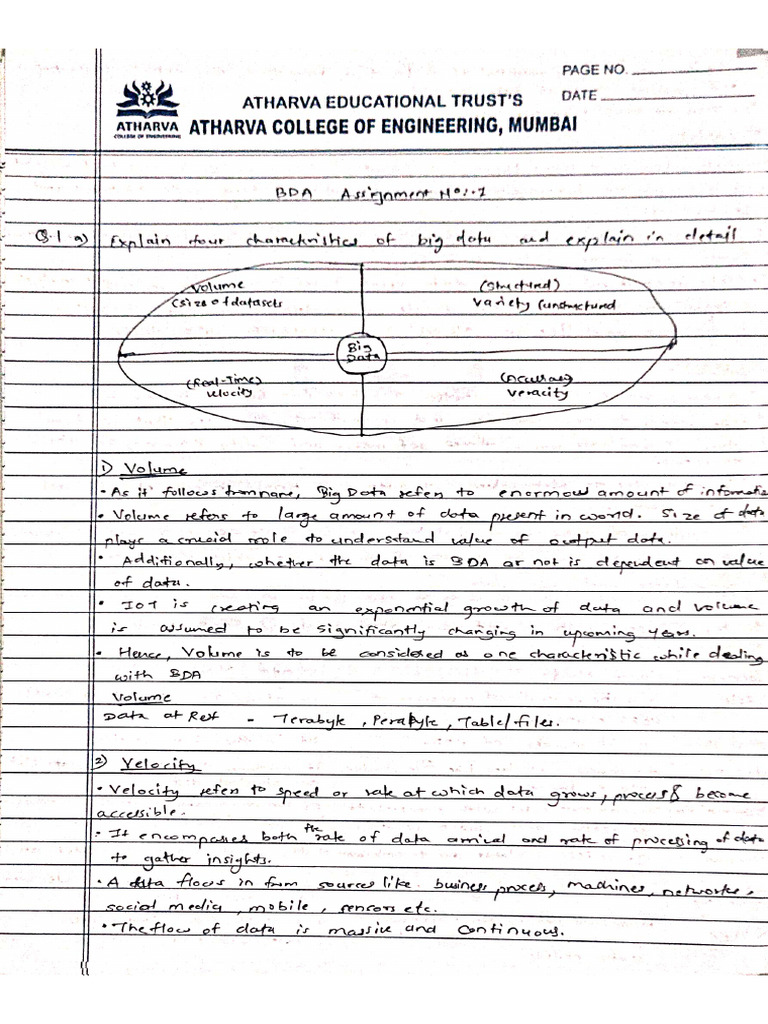 PAGE NO.
DATE
ATHARVA EDUCATIONAL TRUST'S
ATHARVA
COLLEGE OF ENGINEERING
ATHARVA COLLEGE OF ENGINEERING, MUMBAI
BDA Assignment No:-1
Q.1 a) Explain four characteristics of big data and explain in detail
Volume
(Size of datasets
(Structured)
Variety (unstructured
Big
Data
(Real-Time)
velocity
(Accuracy)
Veracity
1) Volume
• As it follows from name, Big Data refers to enormous amount of informatio
• Volume refers to large amount of data present in world. Size of data
plays a crucial role to understand value of output data.
• Additionally, whether the data is BDA or not is dependent on value
of data.
• IoT is creating an exponential growth of data and volume
is assumed to be significantly changing in upcoming years.
• Hence, Volume is to be considered as one characteristic while dealing
with BDA
Volume
Data at Rest - Terabyte, Perabyte, Table/files.
2) Velocity
• Velocity refers to speed or rate at which data grows, process & become
accessible.
• It encompasses both the rate of data arrival and rate of processing of data
to gather insights.
• A data flows in from sources like business process, machines, networks,
social media, mobile, sensors etc.
• The flow of data is massive and continuous.